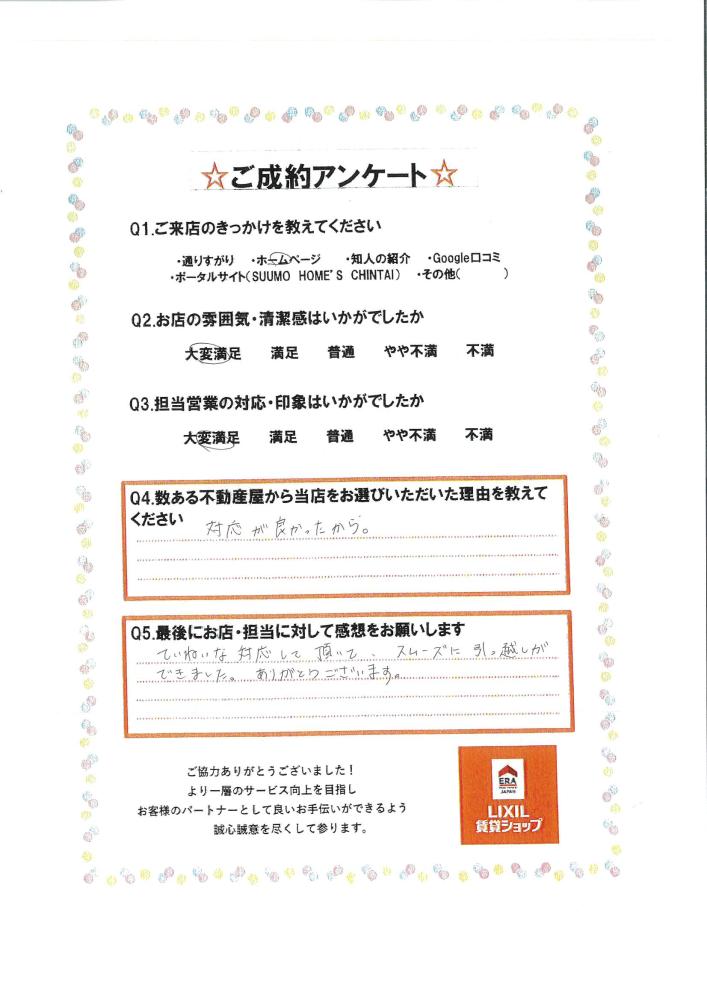 ☆ご成約アンケート☆
Q1.ご来店のきっかけを教えてください
・通りすがり ・ホームページ ・知人の紹介 ・Google口コミ
・ポータルサイト(SUUMO HOME'S CHINTAI) ・その他( )
Q2.お店の雰囲気・清潔感はいかがでしたか
大変満足 満足 普通 やや不満 不満
Q3.担当営業の対応・印象はいかがでしたか
大変満足 満足 普通 やや不満 不満
Q4.数ある不動産屋から当店をお選びいただいた理由を教えて
ください
対応が良かったから。
Q5.最後にお店・担当に対して感想をお願いします
ていねいな対応して頂いて、スムーズに引っ越しが
できました。ありがとうございます。
ご協力ありがとうございました！
より一層のサービス向上を目指し
お客様のパートナーとして良いお手伝いができるよう
誠心誠意を尽くして参ります。
ERA
JAPAN
LIXIL
賃貸ショップ